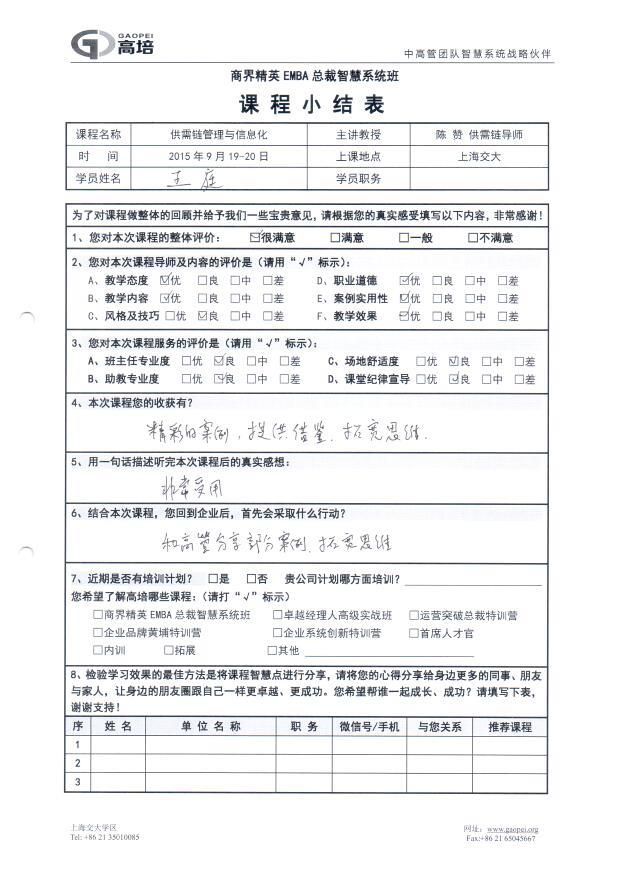 GAOPEI
高培
中高管团队智慧系统战略伙伴
商界精英 EMBA 总裁智慧系统班
课 程 小 结 表
课程名称 供需链管理与信息化 主讲教授 陈 赞 供需链导师
时 间 2015 年 9 月 19-20 日 上课地点 上海交大
学员姓名 王庭 学员职务
为了对课程做整体的回顾并给予我们一些宝贵意见，请根据您的真实感受填写以下内容，非常感谢！
1、您对本次课程的整体评价： ☑很满意 □满意 □一般 □不满意
2、您对本次课程导师及内容的评价是（请用“√”标示）：
A、教学态度 ☑优 □良 □中 □差 D、职业道德 ☑优 □良 □中 □差
B、教学内容 ☑优 □良 □中 □差 E、案例实用性 ☑优 □良 □中 □差
C、风格及技巧 □优 ☑良 □中 □差 F、教学效果 ☑优 □良 □中 □差
3、您对本次课程服务的评价是（请用“√”标示）：
A、班主任专业度 □优 ☑良 □中 □差 C、场地舒适度 □优 ☑良 □中 □差
B、助教专业度 □优 ☑良 □中 □差 D、课堂纪律宣导 □优 ☑良 □中 □差
4、本次课程您的收获有？
精彩的案例，提供借鉴，拓宽思维.
5、用一句话描述听完本次课程后的真实感想：
非常受用
6、结合本次课程，您回到企业后，首先会采取什么行动？
和高管分享部分案例、拓宽思维
7、近期是否有培训计划？ □是 □否 贵公司计划哪方面培训？
您希望了解高培哪些课程：（请打“√”标示）
□商界精英 EMBA 总裁智慧系统班 □卓越经理人高级实战班 □运营突破总裁特训营
□企业品牌黄埔特训营 □企业系统创新特训营 □首席人才官
□内训 □拓展 □其他
8、检验学习效果的最佳方法是将课程智慧点进行分享，请将您的心得分享给身边更多的同事、朋友
与家人，让身边的朋友圈跟自己一样更卓越、更成功。您希望帮谁一起成长、成功？请填写下表，
谢谢支持！
序 姓 名 单 位 名 称 职 务 微信号/手机 与您关系 推荐课程
1
2
3
上海交大学区 网址：www.gaopei.org
Tel: +86 21 35010085 Fax:+86 21 65045667